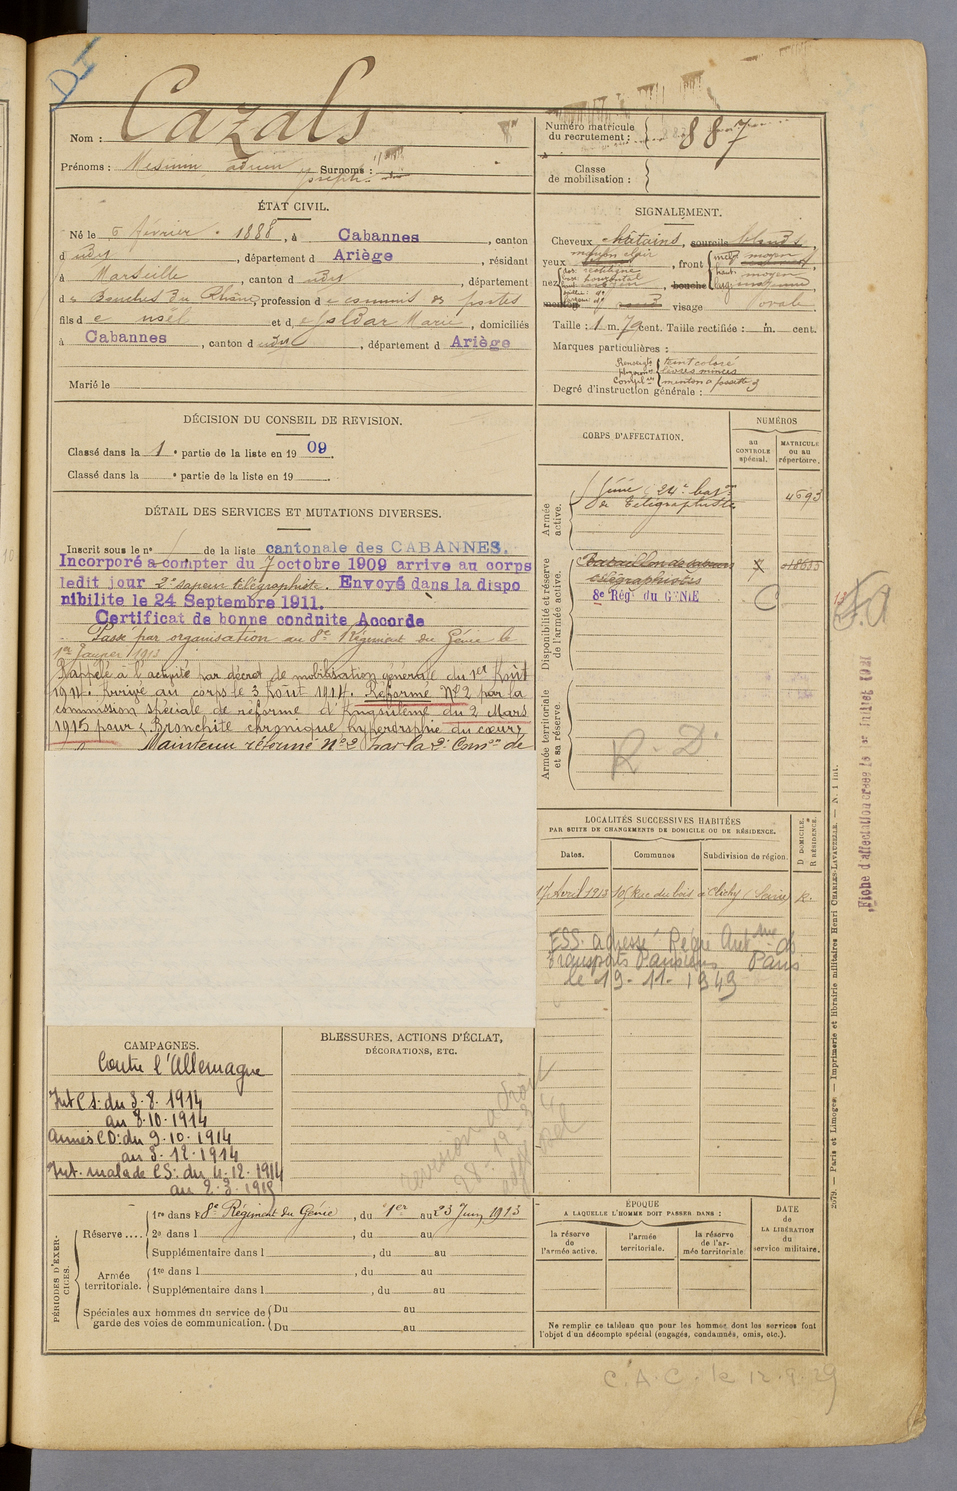 DI
Cazals
Nom :
Numéro matricule
du recrutement :
887
Prénoms : adrien Joseph Surnoms :
Classe
de mobilisation :
ÉTAT CIVIL.
Né le 6 février 1888, à Cabannes, canton
d udit, département d Ariège, résidant
à Marseille, canton d udit, département
d es Bouches du Rhône, profession d e commis des postes
fils d e noël et d e Marie, domiciliés
à Cabannes, canton d udit, département d Ariège
Marié le
SIGNALEMENT.
Cheveux châtains, sourcils blonds,
marron clair
yeux , front moyen
haut. moyen
nez bouche larg. moyenne
menton rond visage ovale
Taille : 1 m. 70 cent. Taille rectifiée : m. cent.
Marques particulières :
teint coloré
lèvres minces
menton à fossette
Degré d'instruction générale : 3
DÉCISION DU CONSEIL DE REVISION.
Classé dans la 1e partie de la liste en 1909
Classé dans la e partie de la liste en 19
DÉTAIL DES SERVICES ET MUTATIONS DIVERSES.
Inscrit sous le no de la liste cantonale des CABANNES.
Incorporé à compter du 7 octobre 1909 arrive au corps
ledit jour 2e sapeur télégraphiste. Envoyé dans la dispo
nibilite le 24 Septembre 1911.
Certificat de bonne conduite Accorde
Passé par organisation au 8e Régiment du Génie le
1er Janvier 1913
Rappelé à l'activité par décret de mobilisation générale du 1er Août
1914. Arrivé au corps le 3 Août 1914. Réformé No 2 par la
commission spéciale de réforme d'Angoulême du 2 Mars
1915 pour "Bronchite chronique hypertrophie du cœur"
Maintenu réformé No 2 par la 2e Comon de
CORPS D'AFFECTATION.
NUMÉROS
au
CONTROLE
spécial.
MATRICULE
ou au
répertoire.
Armée
active.
Génie 24e baton
de Télégraphistes
4693
Disponibilité et réserve
de l'armée active.
Bataillon de sapeurs
télégraphistes
8e Rég. du GENIE
Armée territoriale
et sa réserve.
R. D.
LOCALITÉS SUCCESSIVES HABITÉES
PAR SUITE DE CHANGEMENTS DE DOMICILE OU DE RÉSIDENCE.
Dates.
Communes
Subdivision de région.
D DOMICILE.
R RÉSIDENCE.
17 Avril 1913 Rue du bois à Clichy (Seine) R.
ESS. adressé Régie Autme des
Transports Parisiens Paris
le 19-11-1949
CAMPAGNES.
Contre l'Allemagne
Int C.S: du 3.8.1914
au 8.10.1914
Armées CD: du 9.10.1914
au 3.12.1914
Int. malade CS: du 4.12.1914
au 2.3.1915
BLESSURES, ACTIONS D'ÉCLAT,
DÉCORATIONS, ETC.
PÉRIODES D'EXER-
CICES.
Réserve ....
1re dans l e 8e Régiment du Génie, du 1er au 23 Juin 1913
2e dans l , du au
Supplémentaire dans l , du au
Armée
territoriale.
1re dans l , du au
Supplémentaire dans l , du au
Spéciales aux hommes du service de
garde des voies de communication.
Du au
Du au
ÉPOQUE
A LAQUELLE L'HOMME DOIT PASSER DANS :
la réserve
de
l'armée active.
l'armée
territoriale.
la réserve
de l'ar-
mée territoriale
DATE
de
LA LIBÉRATION
du
service militaire.
Ne remplir ce tableau que pour les hommes dont les services font
l'objet d'un décompte spécial (engagés, condamnés, omis, etc.).
2079. — Paris et Limoges. — Imprimerie et librairie militaires Henri CHARLES-LAVAUZELLE. — N. 1 int.
C.A.C. le 12.9.29